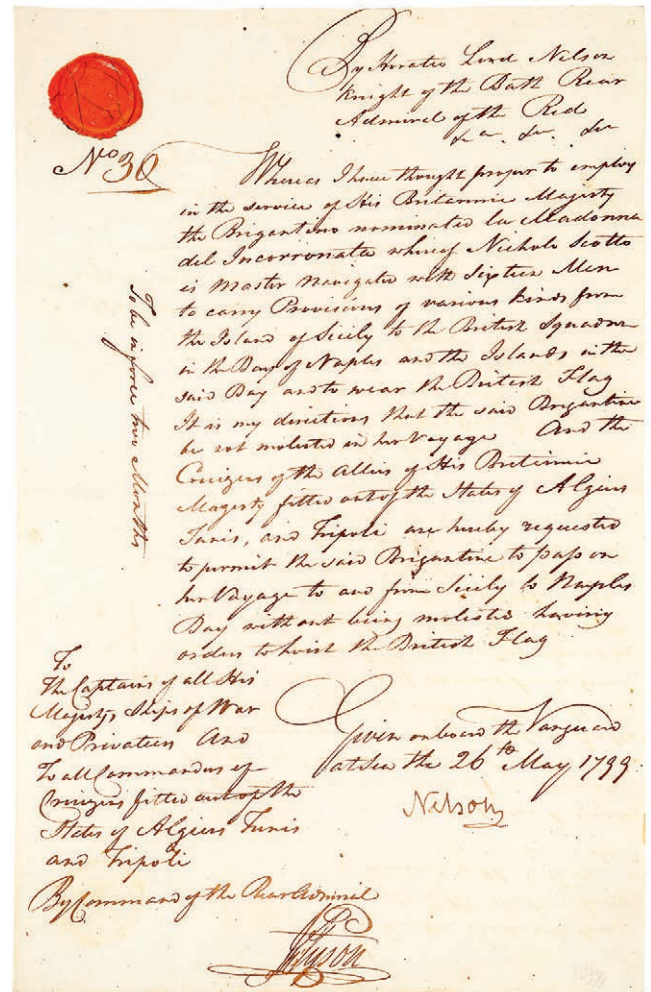 By Horatio Lord Nelson
Knight of the Bath Rear
Admiral of the Red
&c &c &c
No 30
Whereas I have thought proper to employ
in the service of His Britannic Majesty
the Brigantino nominated la Madonna
del Incorronata whereof Nichola Scotto
is Master Navigated with Sixteen Men
to carry Provisions of various kinds from
the Island of Sicily to the British Squadron
in the Bay of Naples and the Islands in the
said Bay and to wear the British Flag
It is my directions that the said Brigantine
be not molested in her Voyage And the
Cruizers of the Allies of His Britannic
Majesty fitted out of the States of Algiers
Tunis, and Tripoli are hereby requested
to permit the said Brigantine to pass on
her Voyage to and from Sicily to Naples
Bay without being molested having
orders to hoist the British Flag
To be in force two Months
Given on board the Vanguard
at Sea the 26th May 1799
Nelson
To
The Captains of all His
Majestys Ships of War
and Privateers And
To all Commanders of
Cruizers fitted out of the
States of Algiers Tunis
and Tripoli
By Command of the Rear Admiral
Jn Tyson